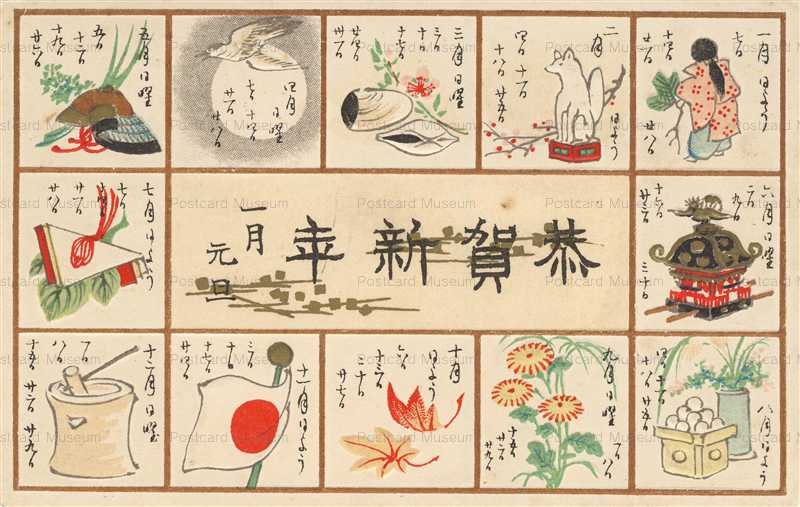 一月 日よう
七日
十四日
廿一日
廿八日
二月
日よう
四日 十一日
十八日 廿五日
三月 日曜
三日
十日
十七日
廿四日
卅一日
四月 日曜
七日 十四日
廿一日
廿八日
五月 日曜
五日
十二日
十九日
廿六日
六月 日曜
二日 九日
十六日
廿三日
三十日
恭賀新年
一月
元旦
七月 日よう
七日
十四日
廿一日
廿八日
八月 日よう
四日 十一日
十八日 廿五日
九月 日曜
一日 八日
十五日
廿二日
廿九日
十月
日よう
六日
十三日
二十日
廿七日
十一月 日よう
三日
十日
十七日
廿四日
十二月 日曜
一日
八日
十五日 廿二日 廿九日
Postcard Museum